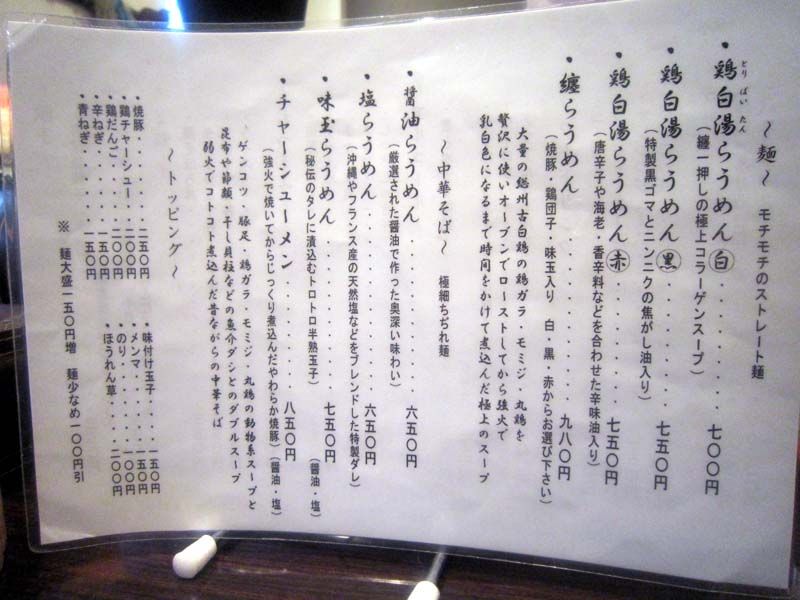 ～麺～ モチモチのストレート麺
・鶏白湯らうめん㊀白・・・・・七〇〇円
とり ぱい たん
(纏一押しの極上コラーゲンスープ)
・鶏白湯らうめん黒・・・・・七五〇円
(特製黒ゴマとニンニクの焦がし油入り)
・鶏白湯らうめん赤・・・・・七五〇円
(唐辛子や海老・香辛料などを合わせた辛味油入り)
・纏らうめん・・・・・・・・九八〇円
(焼豚・鶏団子・味玉入り 白・黒・赤からお選び下さい)
大量の総州古白鶏の鶏ガラ・モミジ・丸鶏を
贅沢に使いオーブンでローストしてから強火で
乳白色になるまで時間をかけて煮込んだ極上のスープ
～中華そば～ 極細ちぢれ麺
・醤油らうめん・・・・・・・六五〇円
(厳選された醤油で作った奥深い味わい)
・塩らうめん・・・・・・・・六五〇円
(沖縄やフランス産の天然塩などをブレンドした特製ダレ)
・味玉らうめん・・・・・・・七五〇円
(秘伝のタレに漬込むトロトロ半熟玉子) (醤油・塩)
・チャーシューメン・・・・・八五〇円
(強火で焼いてからじっくり煮込んだやわらか焼豚) (醤油・塩)
ゲンコツ・豚足・鶏ガラ・モミジ・丸鶏の動物系スープと
昆布や節類・干し貝柱などの魚介ダシとのダブルスープ
弱火でコトコト煮込んだ昔ながらの中華そば
～トッピング～
・焼豚・・・・・・二五〇円
・鶏チャーシュー・二〇〇円
・鶏だんご・・・・二〇〇円
・辛ねぎ・・・・・一五〇円
・青ねぎ・・・・・一五〇円
・味付け玉子・・・一五〇円
・メンマ・・・・・一五〇円
・のり・・・・・・一〇〇円
・ほうれん草・・・二〇〇円
※ 麺大盛一五〇円増 麺少なめ一〇〇円引